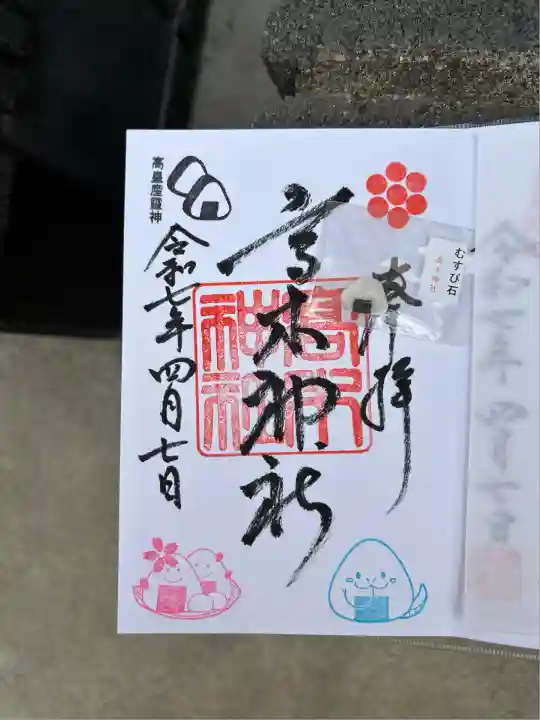 奉拝
むすび石
高木神社
高木神社
高木神社
高皇産靈神
令和七年四月七日